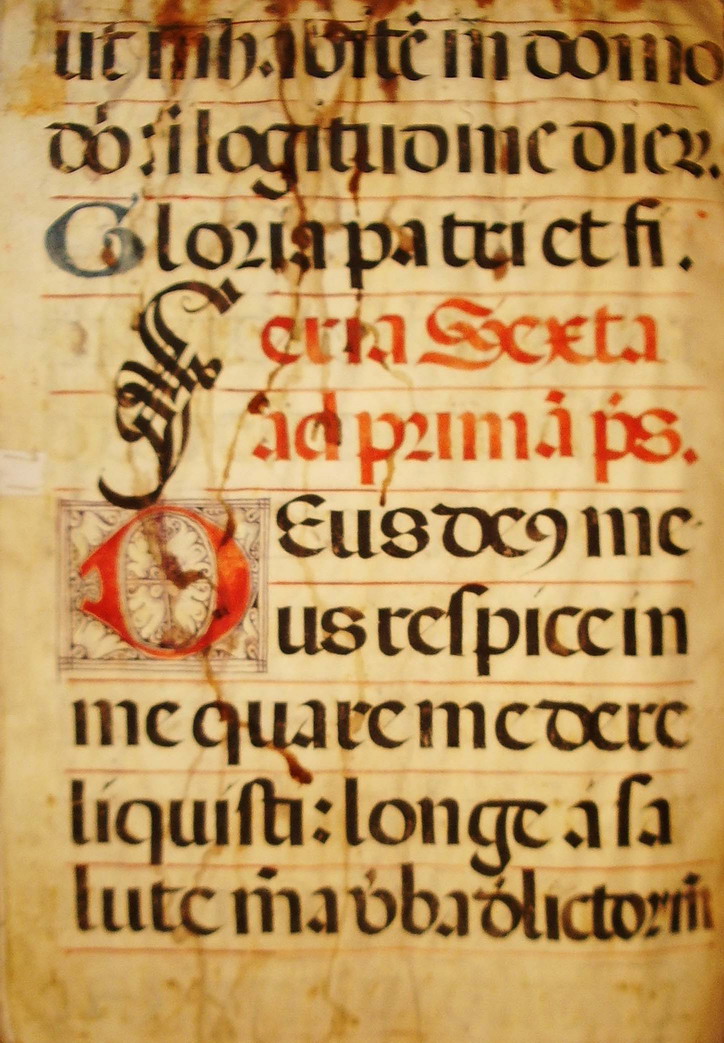 ut inhabitē in domo
dō: i lōgitudine dier.
Gloria patri et fi.
Feria Sexta
ad primā p̄s.
DEus deꝯ me
us reſpice in
me quare me dere
liquiſti: longe á ſa
lute m̄a v̄ba dlictorū m̄